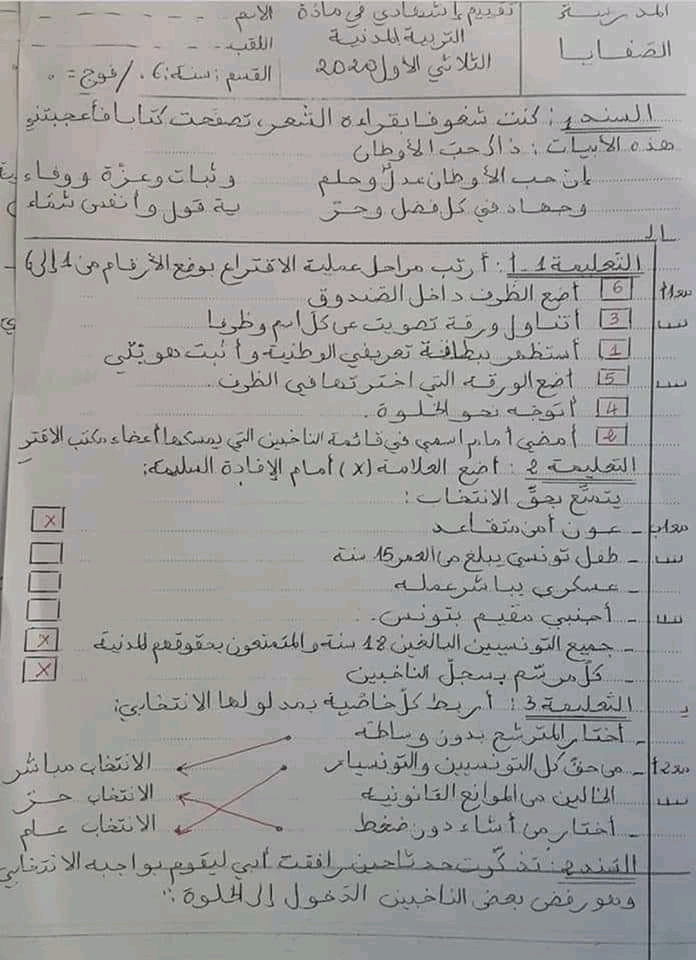 المدرسة
الصفايا
تقييم إشهادي في مادة
التربية المدنية
الثلاثي الأول 2020
الاسم
اللقب
القسم: سنة: 6 / فوج =
السند 1: كنت شغوفا بقراءة الشعر، تصفحت كتابا فأعجبتني
هذه الأبيات: ذاك حب الأوطان
إن حب الأوطان عدل وحلم وثبات وعزة ووفاء
وجهاد في كل فضل وحر ية قول وأنفس شماء
التعليمة 1-1: أرتب مراحل عملية الاقتراع بوضع الأرقام من 1 إلى 6
6 أضع الظرف داخل الصندوق
3 أتناول ورقة تصويت عن كل اسم وظرفا
1 أستظهر ببطاقة تعريفي الوطنية وأثبت هويتي
5 أضع الورقة التي اخترتها في الظرف.
4 أتوجه نحو الخلوة.
2 أمضي أمام اسمي في قائمة الناخبين التي يمسكها أعضاء مكتب الاقتر
التعليمة 2: أضع العلامة (x) أمام الإفادة السليمة:
يتمتع بحق الانتخاب:
مع1ب - عون أمن متقاعد x
- طفل تونسي يبلغ من العمر 15 سنة
- عسكري يباشر عمله
- أجنبي مقيم بتونس.
- جميع التونسيين البالغين 18 سنة والمتمتعون بحقوقهم المدنية x
- كل مرسم بسجل الناخبين x
التعليمة 3: أربط كل خاصية بمدلولها الانتخابي:
- أختار المترشح بدون وساطة
مع2أ - من حق كل التونسيين والتونسيات الانتخاب مباشر
الخالين من الموانع القانونية الانتخاب حر
- أختار من أشاء دون ضغط الانتخاب عام
السند 2: تذكرت حدثا حين رافقت أبي ليقوم بواجبه الانتخابي
وهو رفض بعض الناخبين الدخول إلى الخلوة: